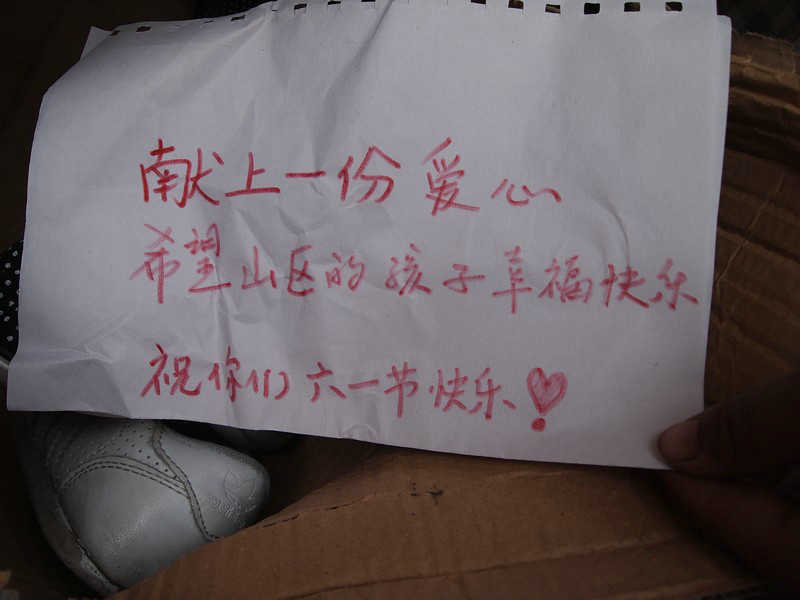 献上一份爱心
希望山区的孩子幸福快乐
祝你们六一节快乐